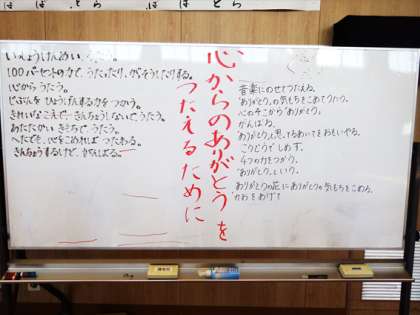 いっしょうけんめい
100パーセントの力で、うたったり、がっそうしたりする。
心から うたう。
じぶんを ひょうげんする力を つかう。
きれいなこえで、きんちょうしないで、うたう。
あたたかい きもちで、うたう。
へたでも、心をこめれば つたわる。
きんちょうするけど、がんばる。
心からのありがとうを
つたえるために
音楽にのせてつたえる。
「ありがとう」の気もちをこめてうたう。
心のそこから「ありがとう」
がんばる。
「ありがとう」と思ってあいてをおもいやる。
こうどうで しめす。
4つの力をつかう。
「ありがとう」という。
ありがとうの花にありがとうの気もちをこめる。